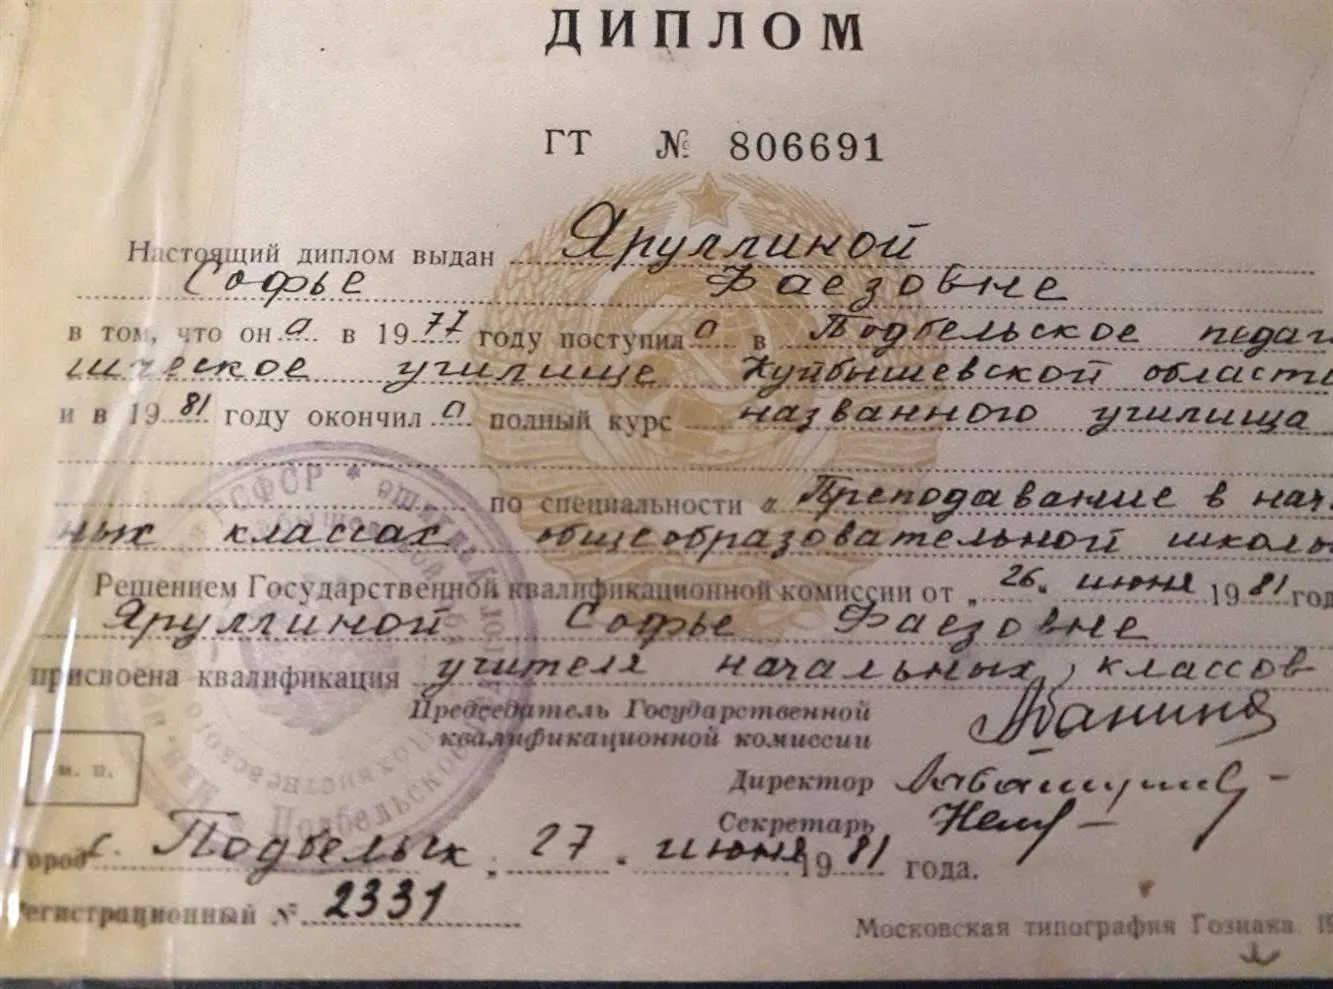 ДИПЛОМ
ГТ № 806691
Настоящий диплом выдан Яруллиной
Софье Фаезовне
в том, что он а в 1977 году поступил а в Подбельское педаг
ическое училище Куйбышевской област
и в 1981 году окончил а полный курс названного училища
по специальности „Преподавание в нач
ных классах общеобразовательной школы
Решением Государственной квалификационной комиссии от „26“ июня 1981 год
Яруллиной Софье Фаезовне
присвоена квалификация учителя начальных классов
Председатель Государственной
квалификационной комиссии
Директор
Секретарь
м. п.
Город с. Подбельск, 27 . июня 1981 года.
Регистрационный № 2331
Московская типография Гознака. 19
РСФСР * училище
Подбельско